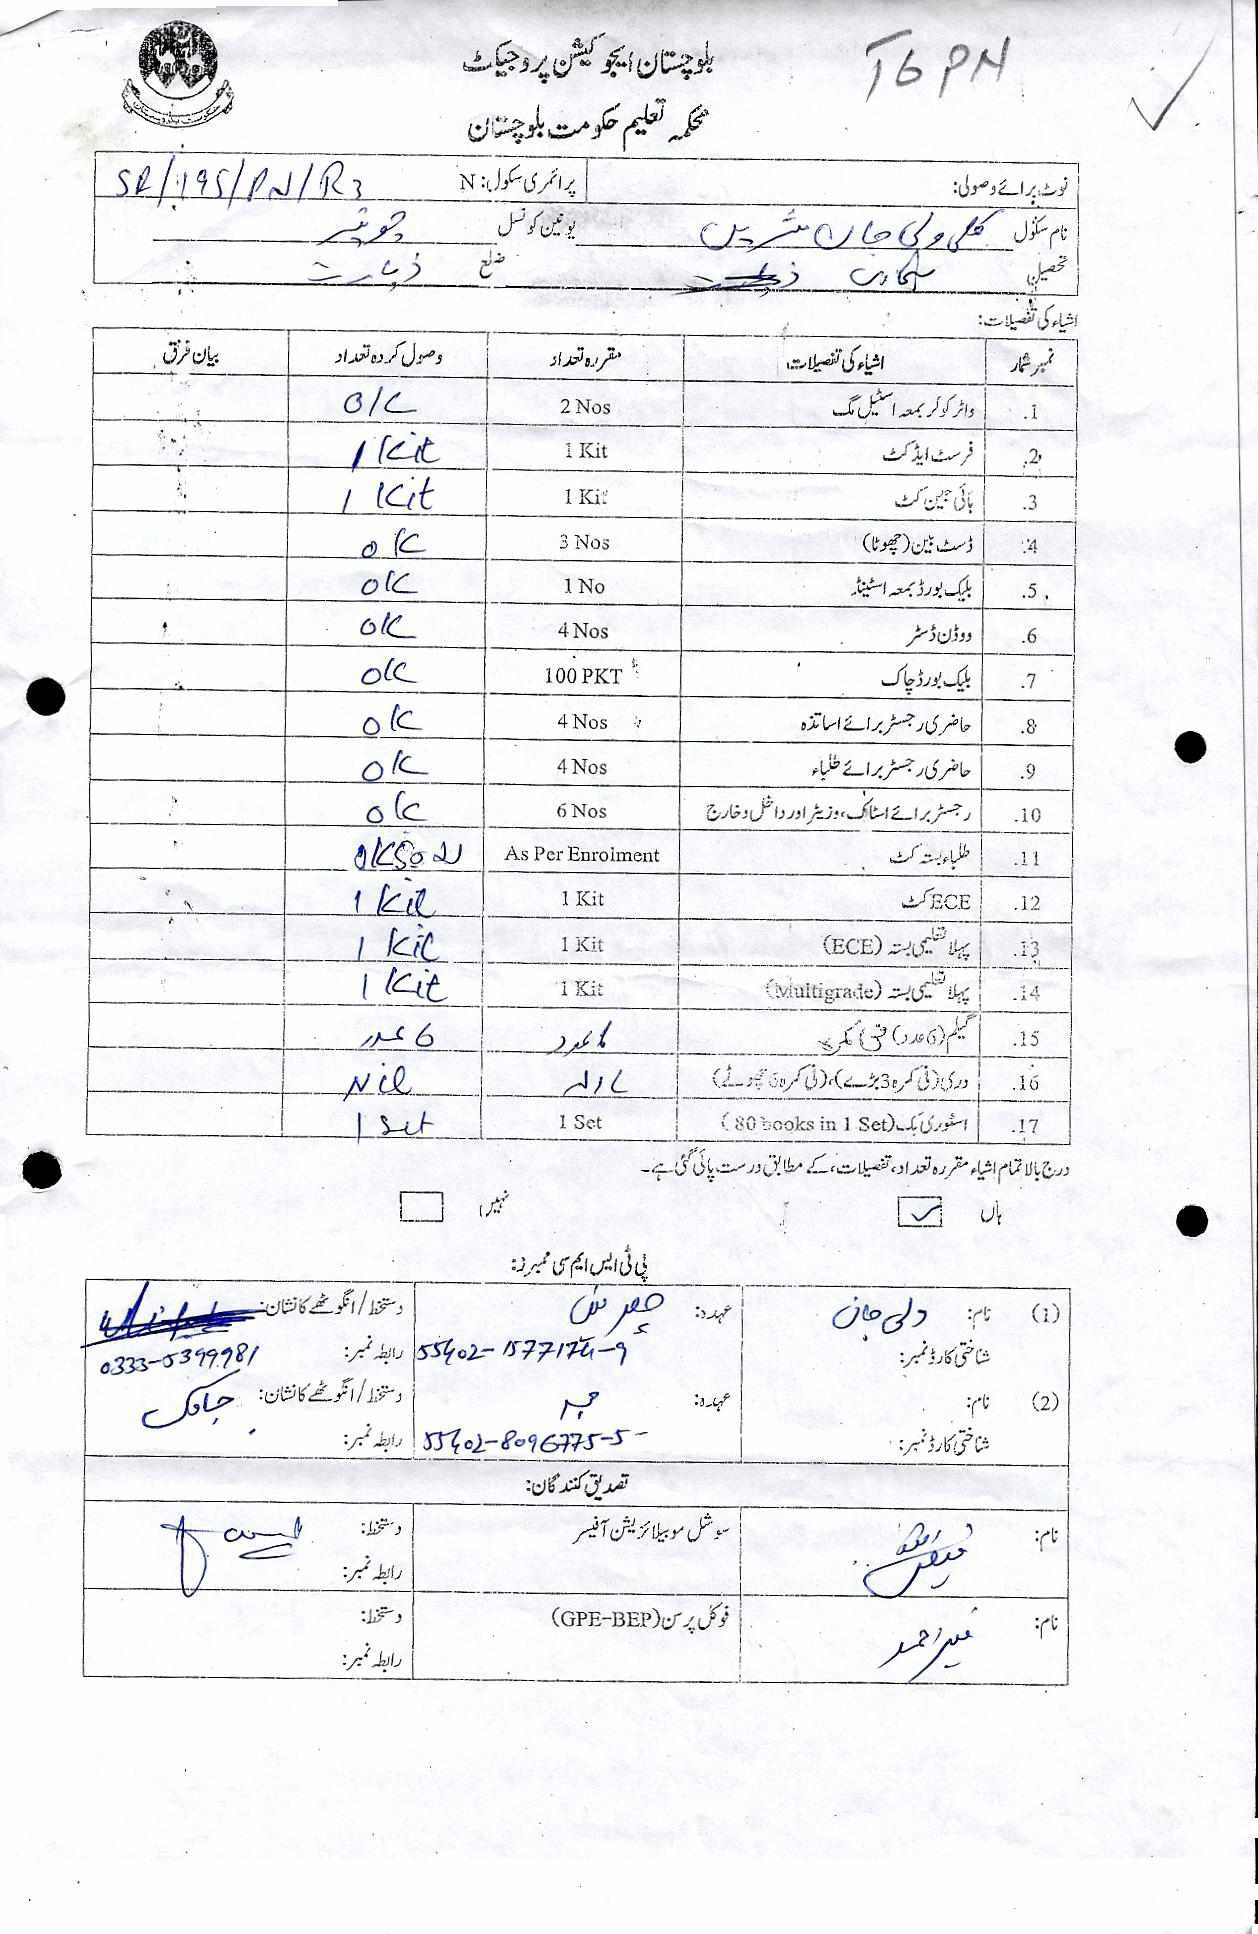 بلوچستان ایجوکیشن پروجیکٹ
T6 PN
محکمہ تعلیم حکومت بلوچستان
نوٹ برائے وصولی: پرائمری سکول: N SR/195/PN/R3
نام سکول کلی ولی جان یونین کونسل
تحصیل ضلع زیارت
اشیاء کی تفصیلات:
نمبر شمار اشیاء کی تفصیلات مقررہ تعداد وصول کردہ تعداد بیان فرق
1. واٹر کولر بمعہ اسٹیل مگ 2 Nos O/C
2. فرسٹ ایڈ کٹ 1 Kit 1 Kit
3. ہائی جین کٹ 1 Kit 1 Kit
4. ڈسٹ بین (چھوٹا) 3 Nos OK
5. بلیک بورڈ بمعہ اسٹینڈ 1 No OK
6. ووڈن ڈسٹر 4 Nos OK
7. بلیک بورڈ چاک 100 PKT OK
8. حاضری رجسٹر برائے اساتذہ 4 Nos OK
9. حاضری رجسٹر برائے طلباء 4 Nos OK
10. رجسٹر برائے اسٹاک، وزیٹر اور داخل و خارج 6 Nos OK
11. طلباء بستہ کٹ As Per Enrolment OK 50
12. ECE کٹ 1 Kit 1 Kit
13. پہلا تعلیمی بستہ (ECE) 1 Kit 1 Kit
14. پہلا تعلیمی بستہ (Multigrade) 1 Kit 1 Kit
15. گلیم (6 عدد) فی کمرہ عدد 6 عدد
16. دری (فی کمرہ 3 بڑے)، (فی کمرہ 6 چھوٹے) Nil
17. اسٹوری بک (80 books in 1 Set) 1 Set 1 Set
درج بالا تمام اشیاء مقررہ تعداد، تفصیلات، کے مطابق درست پائی گئی ہے۔
ہاں نہیں
پی ٹی ایس ایم سی ممبرز:
(1) نام: ولی جان عہدہ: دستخط/انگوٹھے کا نشان:
شناختی کارڈ نمبر: 55402-1577174-9 رابطہ نمبر: 0333-5399981
(2) نام: عہدہ: ممبر دستخط/انگوٹھے کا نشان:
شناختی کارڈ نمبر: 55402-8096775-5 رابطہ نمبر:
تصدیق کنندگان:
نام: سوشل موبیلائزیشن آفیسر دستخط:
رابطہ نمبر:
نام: فوکل پرسن (GPE-BEP) دستخط:
رابطہ نمبر: